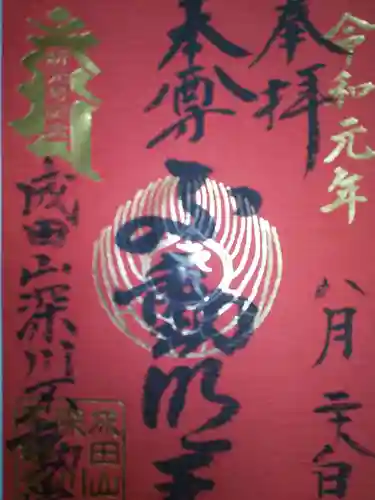 令和元年
八月 日
奉拝
本尊
不動明王
成田山深川不動
成田山